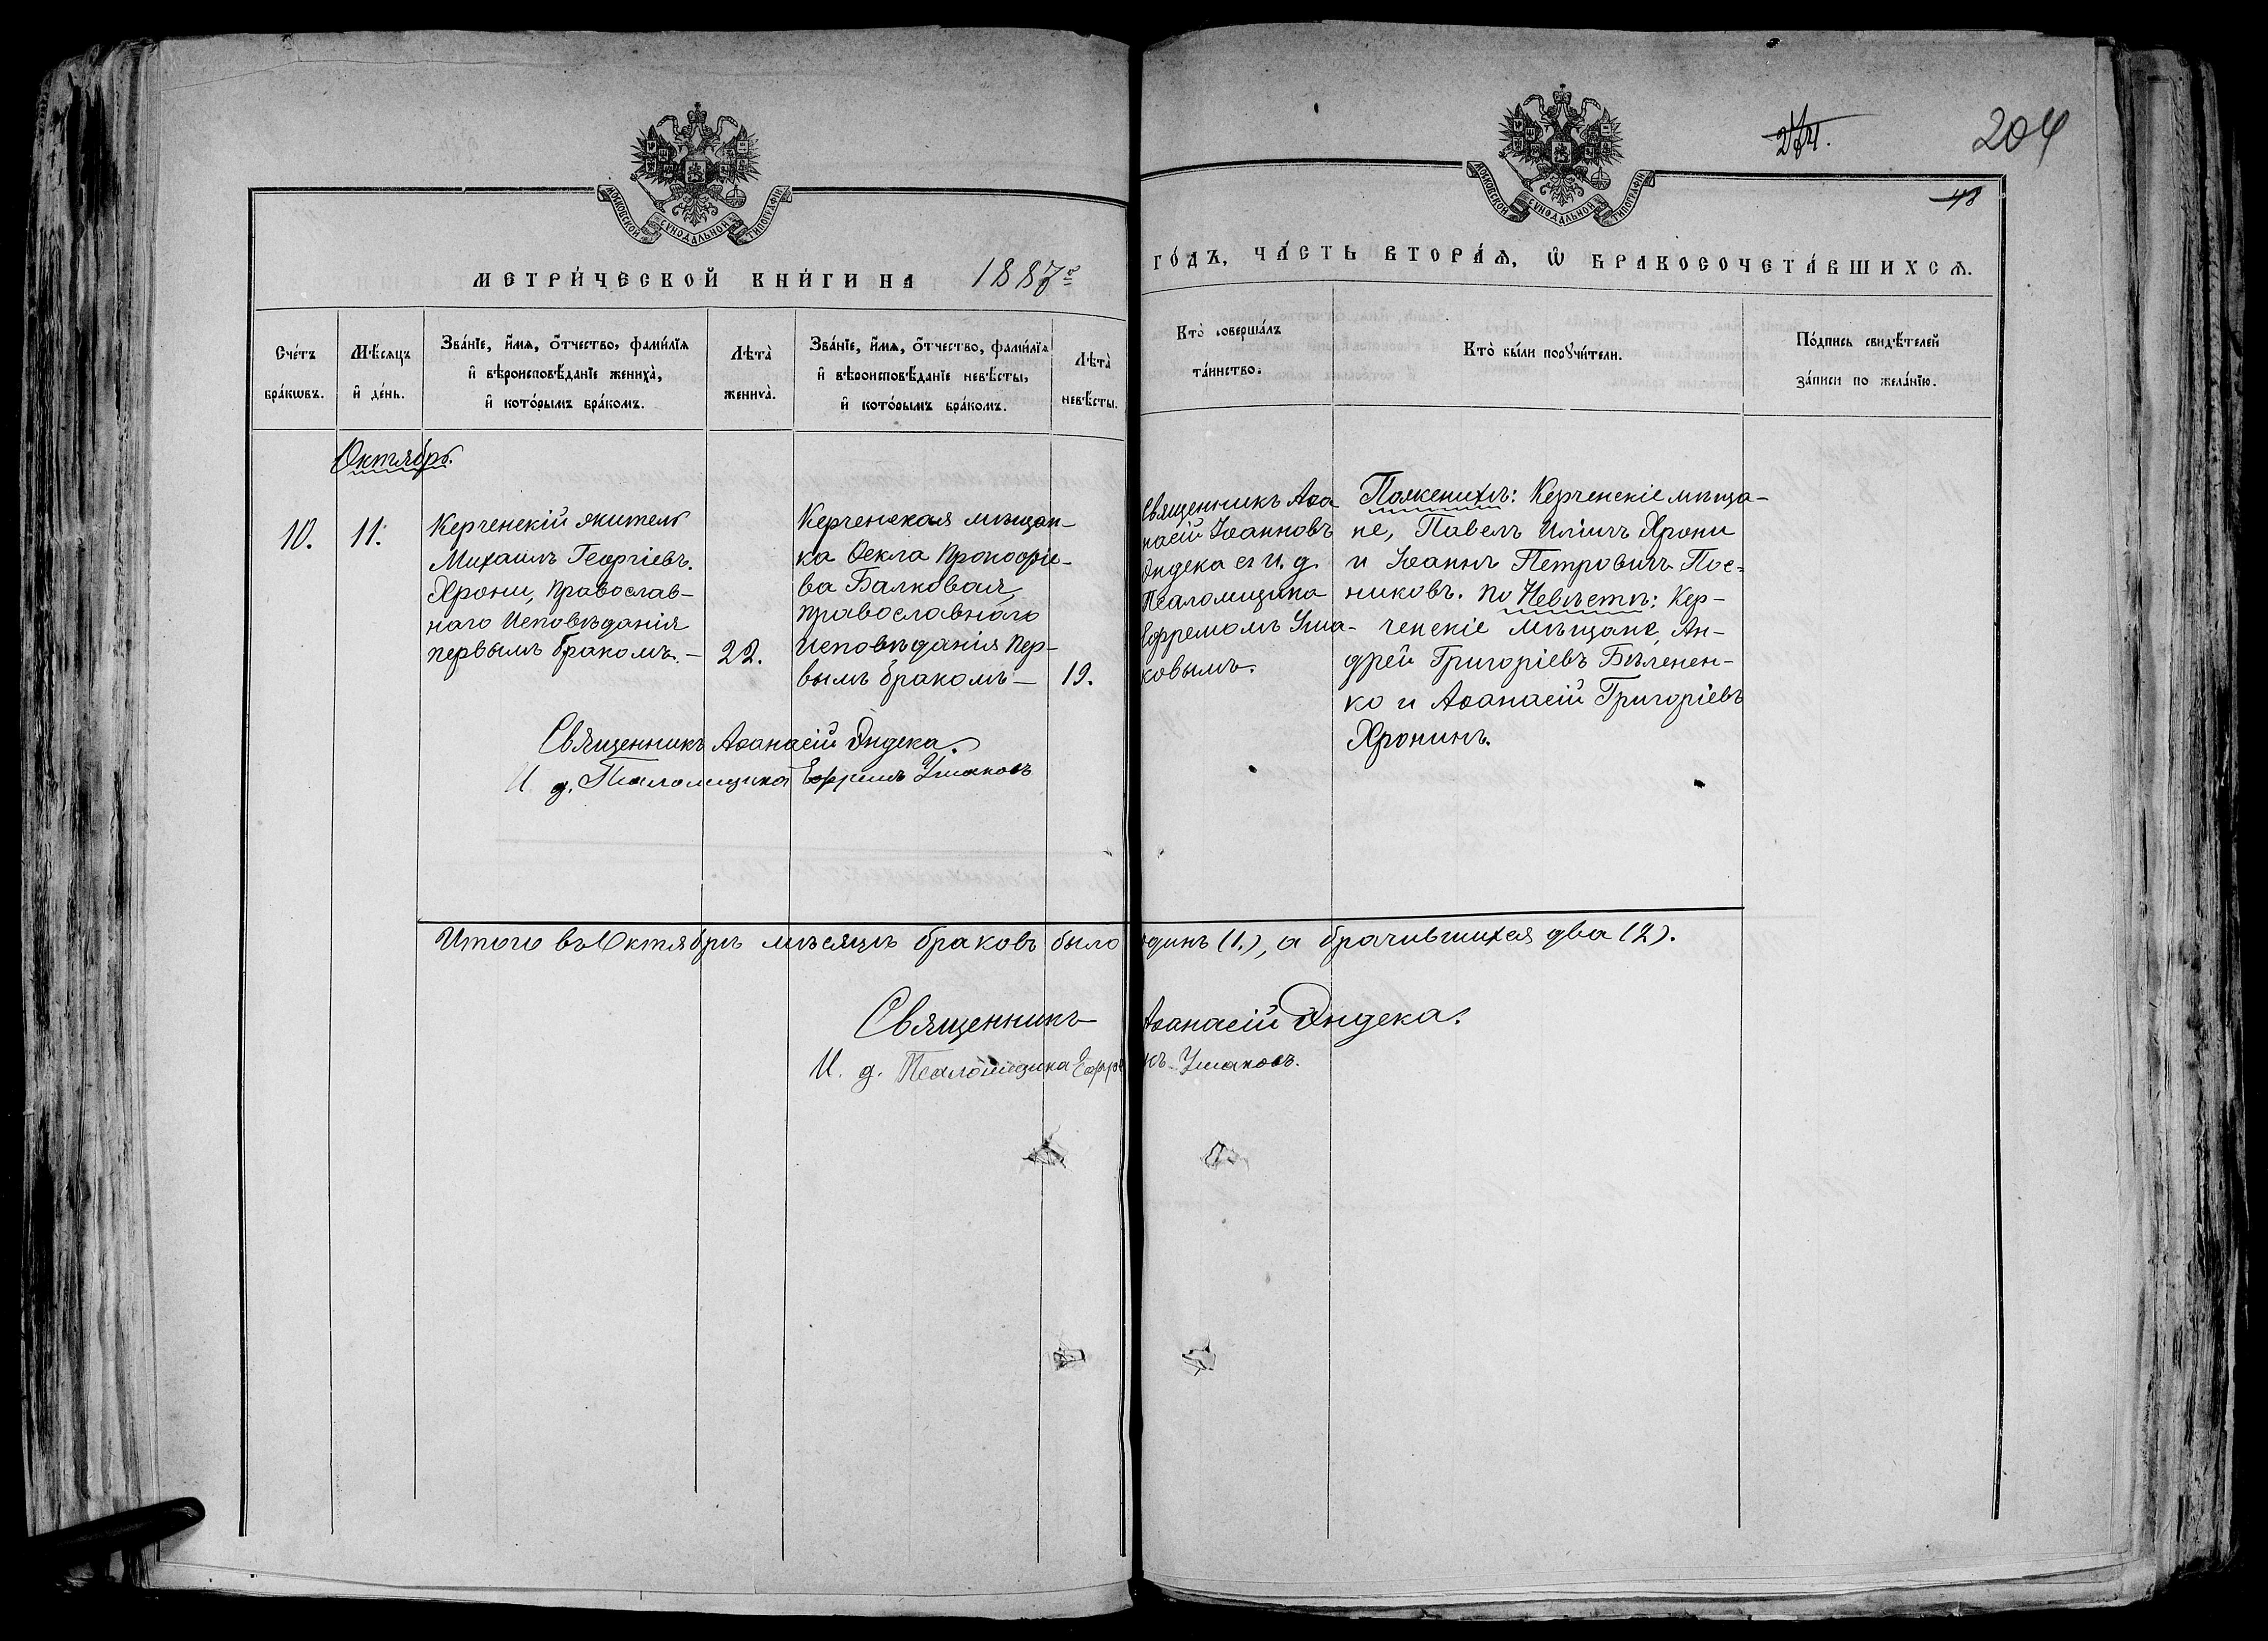 204
48
МОСКОВСКОЙ СѴНОДАЛЬНОЙ ТИПОГРАФІИ
МОСКОВСКОЙ СѴНОДАЛЬНОЙ ТИПОГРАФІИ
МЕТРИ́ЧЕСКОЙ КНИ́ГИ НА 1887 го́дъ, ЧА́СТЬ ВТОРА́Ѧ, Ѽ БРАКОСОЧЕТА́ВШИХСѦ.
Сче́тъ
бра́кѡвъ.
Мѣ́сѧцъ
и҆ де́нь.
Зва́нїе, и҆́мѧ, ѻ҆́тчество, фами́лїѧ
и҆ вѣроисповѣ́данїе жениха̀,
и҆ кото́рымъ бра́комъ.
Лѣта̀
жениха̀.
Зва́нїе, и҆́мѧ, ѻ҆́тчество, фами́лїѧ
и҆ вѣроисповѣ́данїе невѣ́сты,
и҆ кото́рымъ бра́комъ.
Лѣта̀
невѣ́сты.
Кто̀ соверша́лъ
та́инство.
Кто̀ бы́ли порꙋчи́тели.
По́дпись свидѣ́телей
за́писи по жела́нїю.
Октябрь.
10.
11.
Керченскій житель
Михаилъ Георгіевъ
Хрони, Православ-
наго Исповѣданія
первымъ бракомъ. —
22.
Керченская мѣщан-
ка Ѳекла Прокофіе-
ва Балковая,
православнаго
Исповѣданія Пер-
вымъ бракомъ —
19.
Священникъ Аѳа
насій Іоанновъ
Эндека съ И. д.
Псаломщика
Ефремомъ Уша-
ковымъ.
По женихѣ: Керченскіе мѣща-
не, Павелъ Ильичъ Хрони
и Іоаннъ Петровичъ Пос-
никовъ. По Невѣстѣ: Кер-
ченскіе Мѣщане, Ан-
дрей Григоріевъ Бѣленен-
ко и Аѳанасій Григоріевъ
Хронинъ.
Священникъ Аѳанасій Эндека.
И. д. Псаломщика Ефремъ Ушаковъ
Итого въ Октябрѣ мѣсяцѣ браковъ было одинъ (1.), а брачившихся два (2).
Священникъ Аѳанасій Эндека.
И. д. Псаломщика Ефремъ Ушаковъ.